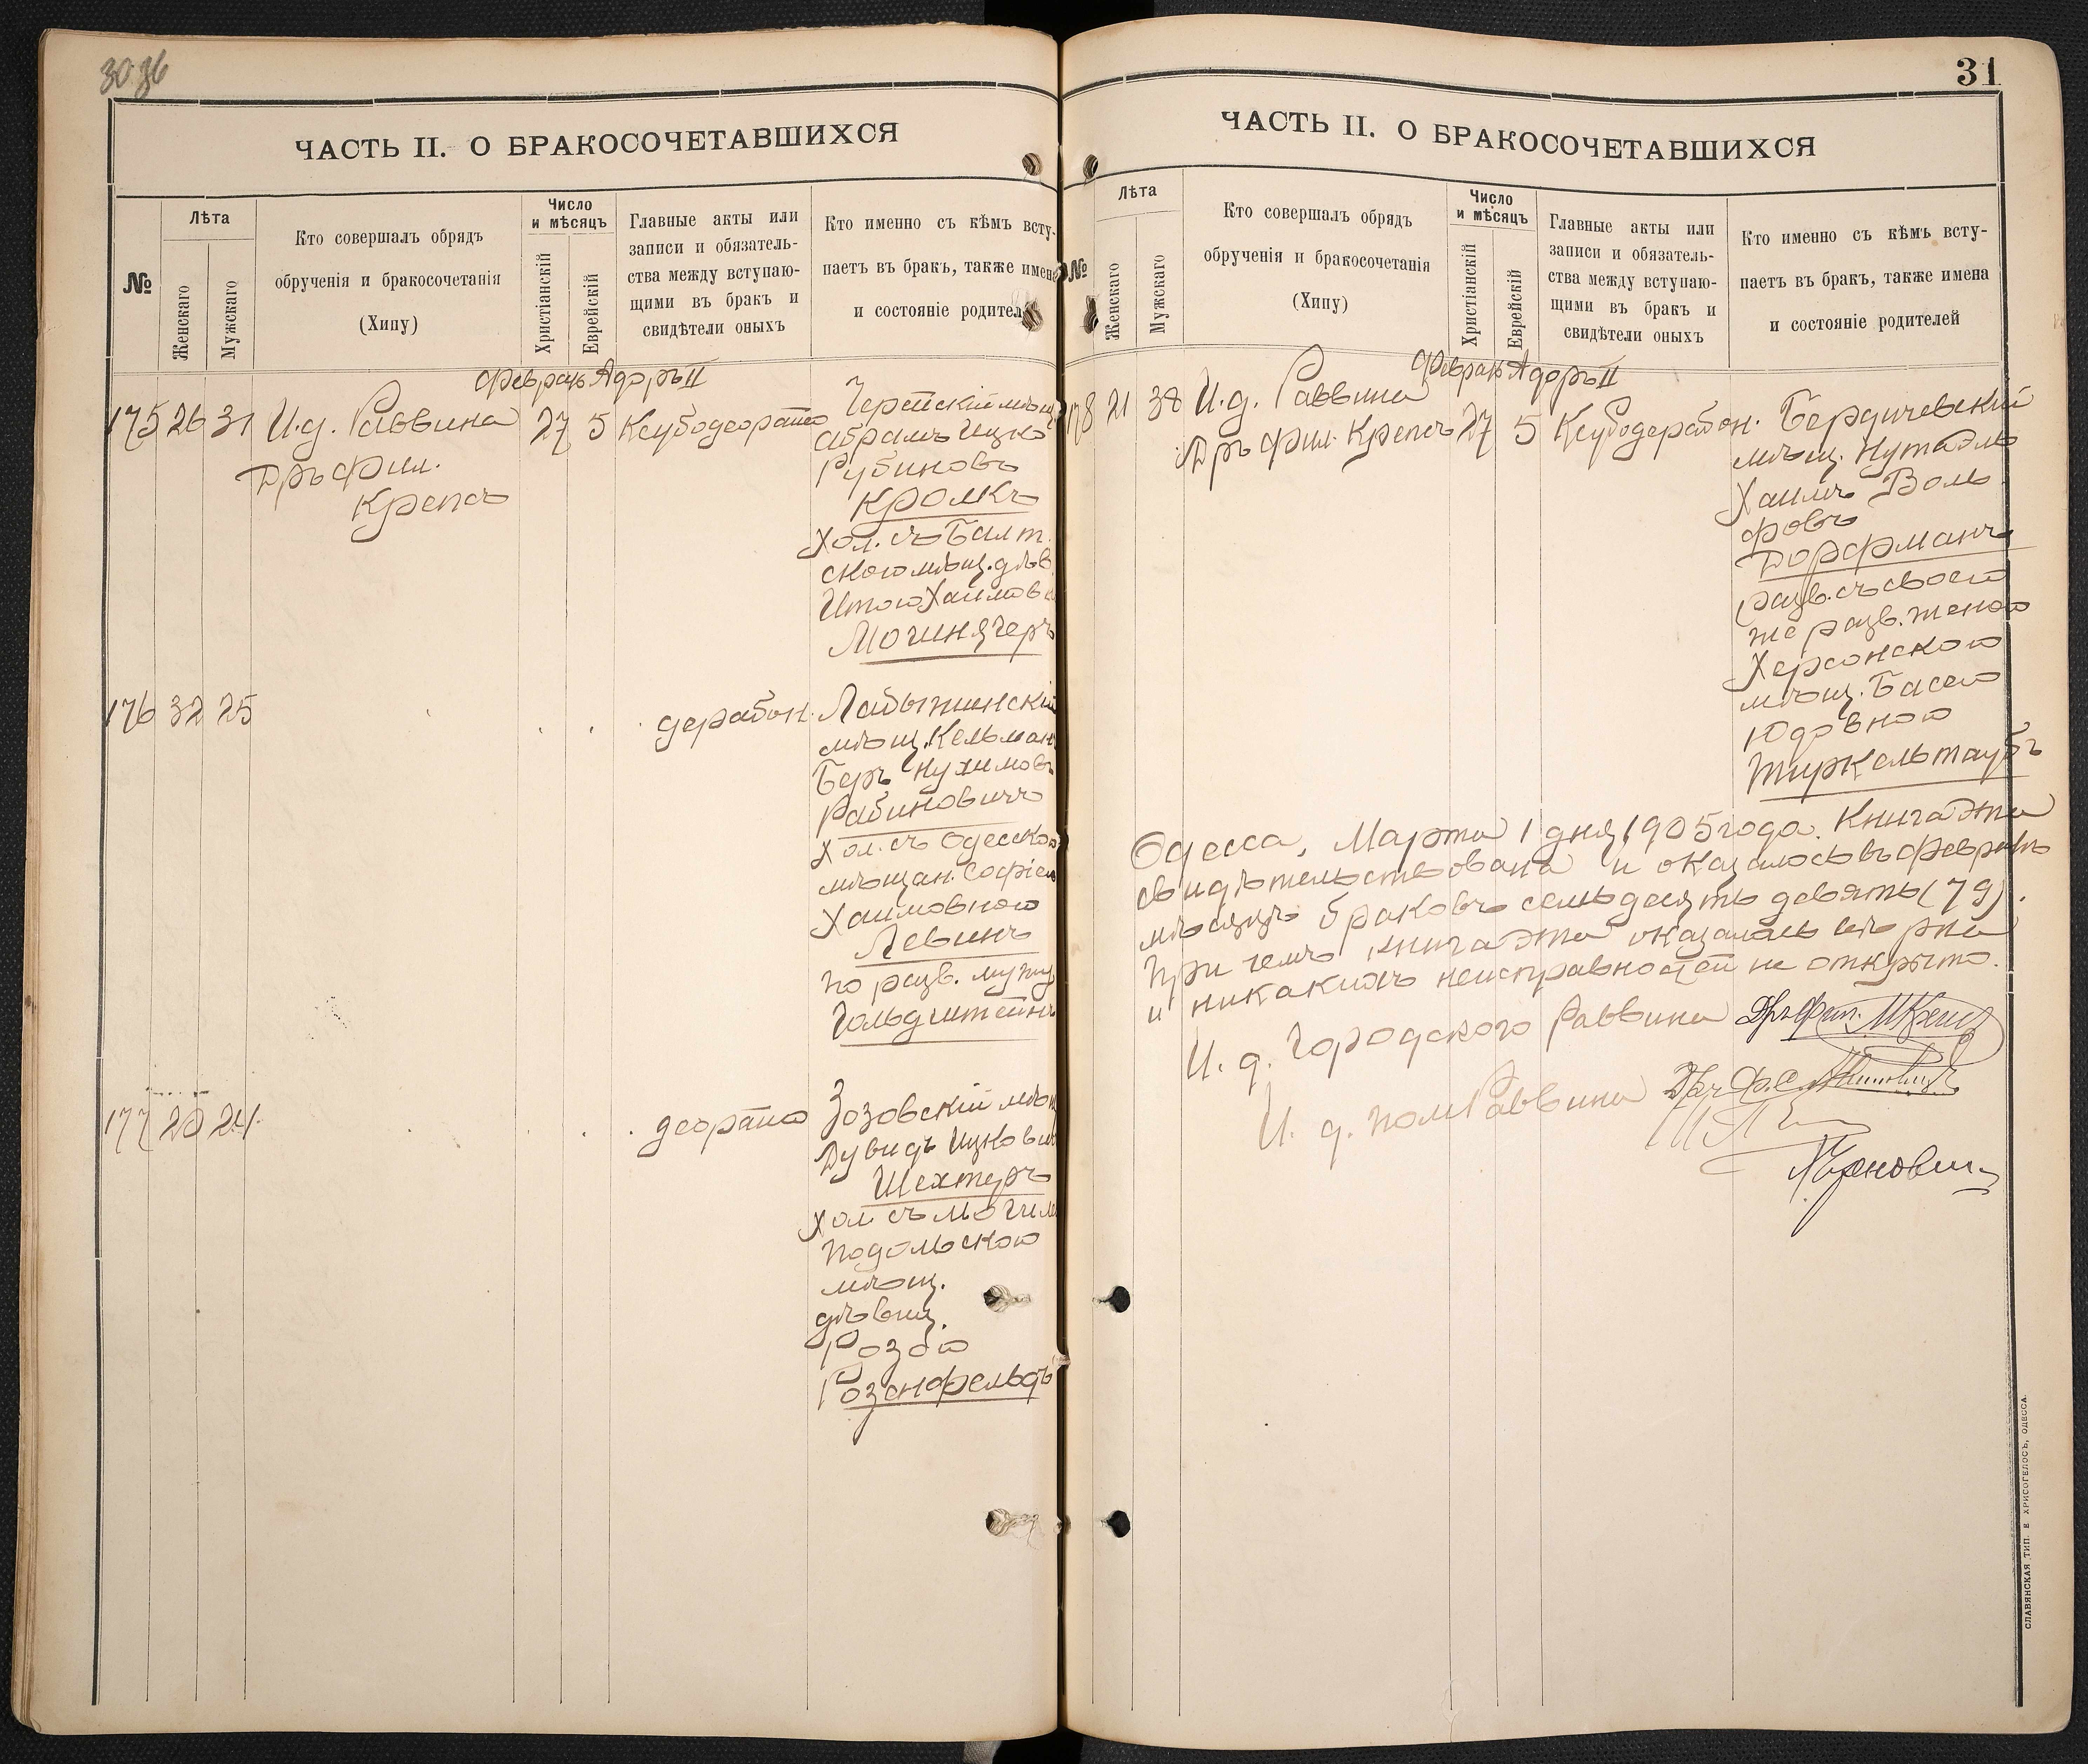 30 36
ЧАСТЬ II. О БРАКОСОЧЕТАВШИХСЯ
№
Лѣта
Женскаго
Мужскаго
Кто совершалъ обрядъ
обрученія и бракосочетанія
(Хипу)
Число
и мѣсяцъ
Христіанскій
Еврейскій
Главные акты или
записи и обязатель-
ства между вступаю-
щими въ бракъ и
свидѣтели оныхъ
Кто именно съ кѣмъ всту-
паетъ въ бракъ, также имена
и состояніе родител
Февраль Адоръ II
175 26 31 И.д. Раввина 27 5 Ксубодеорайто
Дръ фил.
Крепсъ
Черейскій мѣщ.
Абрамъ Ицко
Рубиновъ
Кромкъ
хол. съ Балт.
скою мѣщ. дѣв.
Итою Хаимовн
Могинячеръ
176 32 25 дерабон.
Ладыжинскій
мѣщ. Кельман
Беръ Нухимовъ
Рабиновичъ
хол. съ Одесскою
мѣщан. Софіею
Хаимовною
Левинъ
по разв. мужу
Гольдштейнъ
177 20 24 деорайто
Зозовскій мѣщ
Дувидъ Ицкович
Шехтеръ
хол. съ Могилев
Подольскою
мѣщ.
дѣвиц.
Розою
Розенфельдъ
31
ЧАСТЬ II. О БРАКОСОЧЕТАВШИХСЯ
№
Лѣта
Женскаго
Мужскаго
Кто совершалъ обрядъ
обрученія и бракосочетанія
(Хипу)
Число
и мѣсяцъ
Христіанскій
Еврейскій
Главные акты или
записи и обязатель-
ства между вступаю-
щими въ бракъ и
свидѣтели оныхъ
Кто именно съ кѣмъ всту-
паетъ въ бракъ, также имена
и состояніе родителей
Февраль Адоръ II
178 21 38 И.д. Раввина 27 5 Ксубодерабон.
Дръ фил. Крепсъ
Бердичевскій
мѣщ. Нутадль
Хаимъ Воль
фовъ
Дорфманъ
разв. съ своею
же разв. женою
Херсонскою
мѣщ. Басею
Юдовною
Тиркельтаубъ
Одесса, Марта 1 дня 1905 года. Книга эта
свидѣтельствована и оказалось въ Февралѣ
мѣсяцѣ браковъ семьдесять девять (79).
При чемъ книга эта оказалась вѣрна
и никакихъ неисправностей не открыто.
И. д. Городского Раввина Дръ Фил. М. Крепсъ
И. д. пом. Раввина Дръ Ф.
СЛАВЯНСКАЯ ТИП. Е ХРИСОГЕЛОСЪ, ОДЕССА.